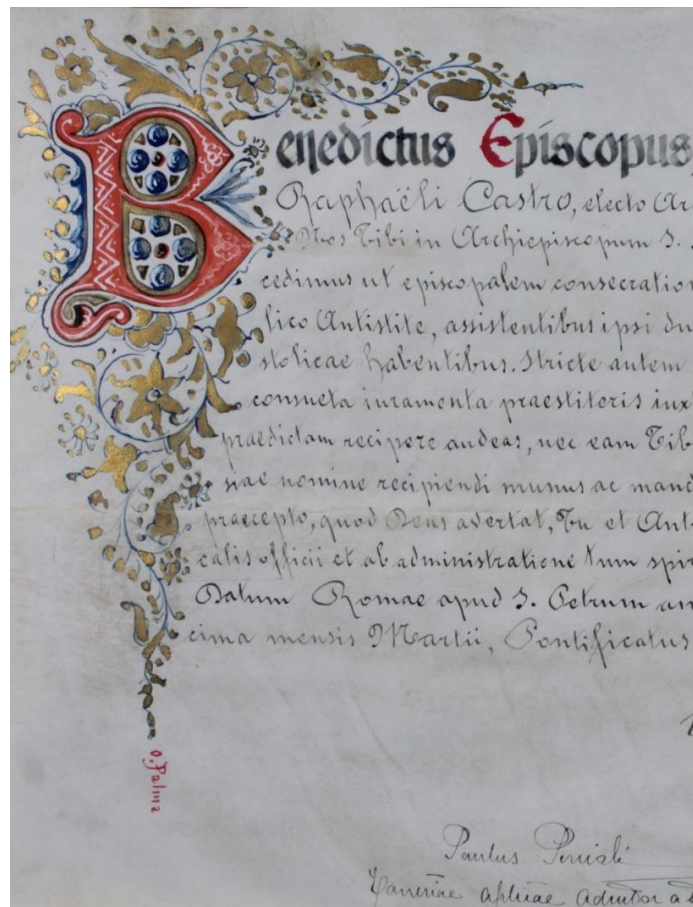 Benedictus Episcopus,
Raphaëli Castro, electo Ar
Nos Tibi in Archiepiscopum S.
cedimus ut episcopalem consecratio
lico Antistite, assistentibus ipsi du
stolicae habentibus. Stricte autem
consueta iuramenta praestiteris iux
praedictam recipere audeas, nec eam Tib
siae nomine recipiendi munus ac mand
praecepto, quod Deus avertat, Tu et Ant
calis officii et ab administratione tum spir
Datum Romae apud S. Petrum an
cima mensis Martii, Pontificatus
O. Palma
Paulus